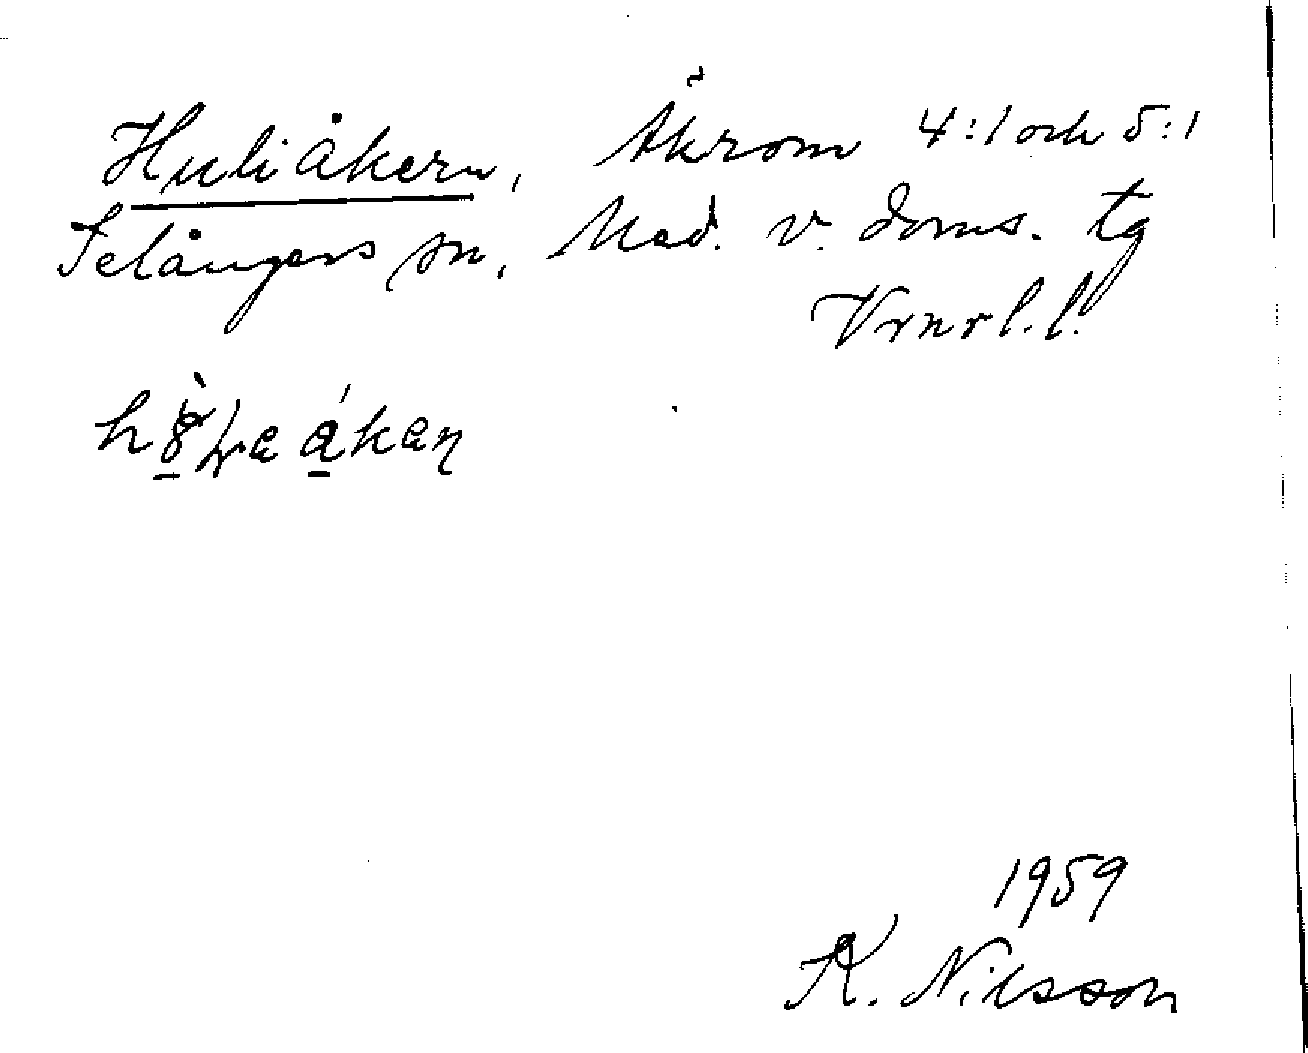 Huliåkern, Åkrom 4:1 och 5:1
Selångers sn, Med. v. doms. tg
1959
K. Nilsson